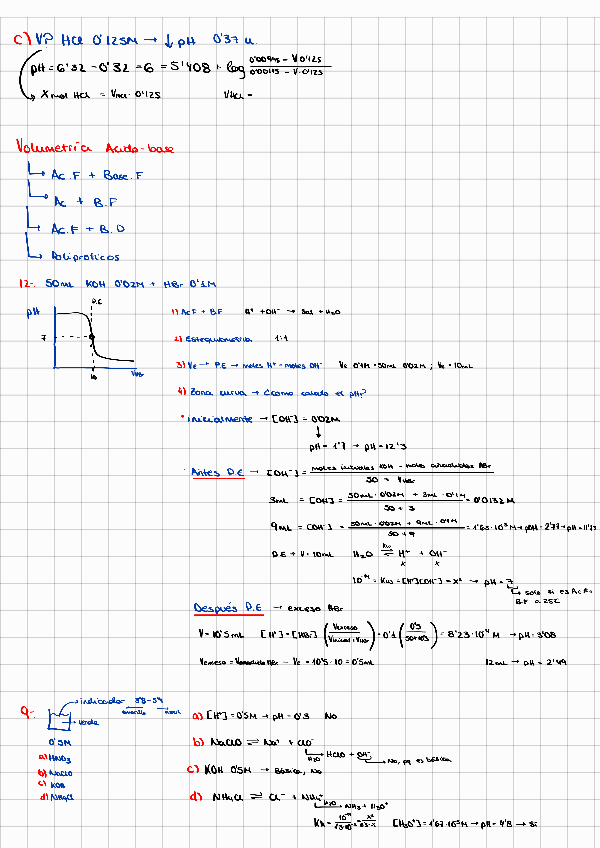 c) VP HCl 0'125M → ↓ pH 0'37 u.
pH = 6'32 - 0'32 = 6 = 5'408 + log (0'00945 - V·0'125)/(0'00115 - V·0'125)
→ x mol HCl = VHCl · 0'125 VHCl =
Volumetria Acido-base
→ Ac.F + Base.F
→ Ac + B.F
→ Ac.F + B.D
→ Poliproticos
12-. 50mL KOH 0'02M + HBr 0'1M
pH
P.E
7
10
VHBr
1) Ac F + B.F H⁺ + OH⁻ → Sal + H₂O
2) Estequiometria 1:1
3) Ve → P.E → moles H⁺ = moles OH⁻ Ve 0'1M = 50mL 0'02M ; Ve = 10mL
4) Zona curva → ¿Como calculo el pH?
* Inicialmente → [OH⁻] = 0'02M
↓
pH = 1'7 → pH = 12'3
· Antes P.E → [OH⁻] = (moles iniciales KOH - moles añadidos HBr)/(50 + VHBr)
3mL = [OH⁻] = (50mL · 0'02M + 3mL · 0'1M)/(50 + 3) = 0'0132M
9mL = [OH⁻] = (50mL · 0'02M + 9mL · 0'1M)/(50 + 9) = 1'69·10⁻³M → pOH = 2'77 → pH = 11'23
P.E → V = 10mL H₂O ⇌ H⁺ + OH⁻
Kw
x x
10⁻¹⁴ = Kw = [H⁺][OH⁻] = x² → pH = 7
→ solo si es Ac F+
B.F a 25C
Después P.E → exceso HBr
V = 10'5mL [H⁺] = [HBr] (Vexceso/(Vinicial + VHBr)) = 0'1 (0'5/(50+10'5)) = 8'23·10⁻⁴ M → pH = 3'08
Vexceso = Vañadido HBr - Ve = 10'5 - 10 = 0'5mL 12mL → pH = 2'49
9-.
→ indicador 3'8-5'4
amarillo azul
→ verde
0'5M
a) HNO₃
b) NaClO
c) KOH
d) NH₄Cl
a) [H⁺] = 0'5M → pH = 0'3 No
b) NaClO ⇌ Na⁺ + ClO⁻
H₂O → HClO + OH⁻
→ No, pq es básica
c) KOH 0'5M → Básica, No
d) NH₄Cl ⇌ Cl⁻ + NH₄⁺
H₂O → NH₃ + H₃O⁺
[H₃O⁺] = 1'67·10⁻⁵M → pH = 4'8 → Si